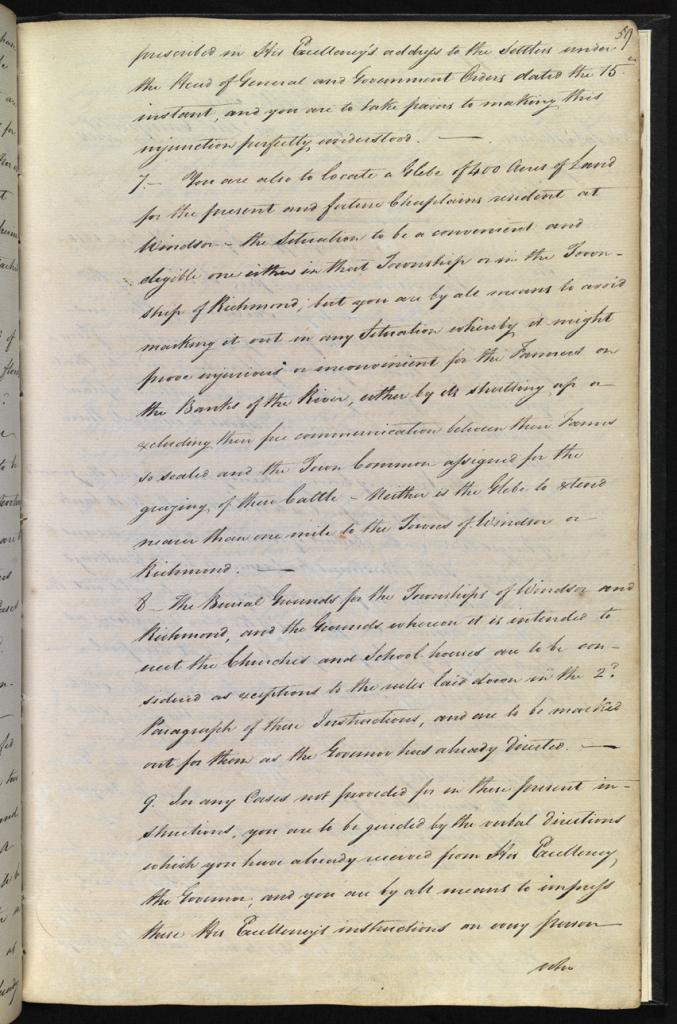 59
prescribed in His Excellency's address to the Settlers under
the Head of General and Government Orders dated the 15th
instant, and you are to take pains to making this
injunction perfectly understood. —
7.— You are also to locate a Glebe of 400 Acres of Land
for the present and future Chaplains resident at
Windsor – the Situation to be a convenient and
eligible one either in that Township or in the Town-
ship of Richmond, but you are by all means to avoid
marking it out in any Situation whereby it might
prove injurious or inconvenient for the Farmers on
the Banks of the River, either by its shutting up or
excluding their free communication between their Farms
so seated and the Town Common assigned for the
grazing of their Cattle – Neither is the Glebe to extend
nearer than one mile to the Towns of Windsor or
Richmond. —
8 – The Burial Grounds for the Townships of Windsor and
Richmond, and the Grounds whereon it is intended to
erect the Churches and School houses are to be con-
sidered as exceptions to the rules laid down in the 2d
Paragraph of these Instructions, and are to be marked
out for them as the Governor has already directed. —
9. In any Cases not provided for in these present in-
structions, you are to be guided by the verbal directions
which you have already received from His Excellency
the Governor, and you are by all means to impress
these His Excellency's instructions on every person
who